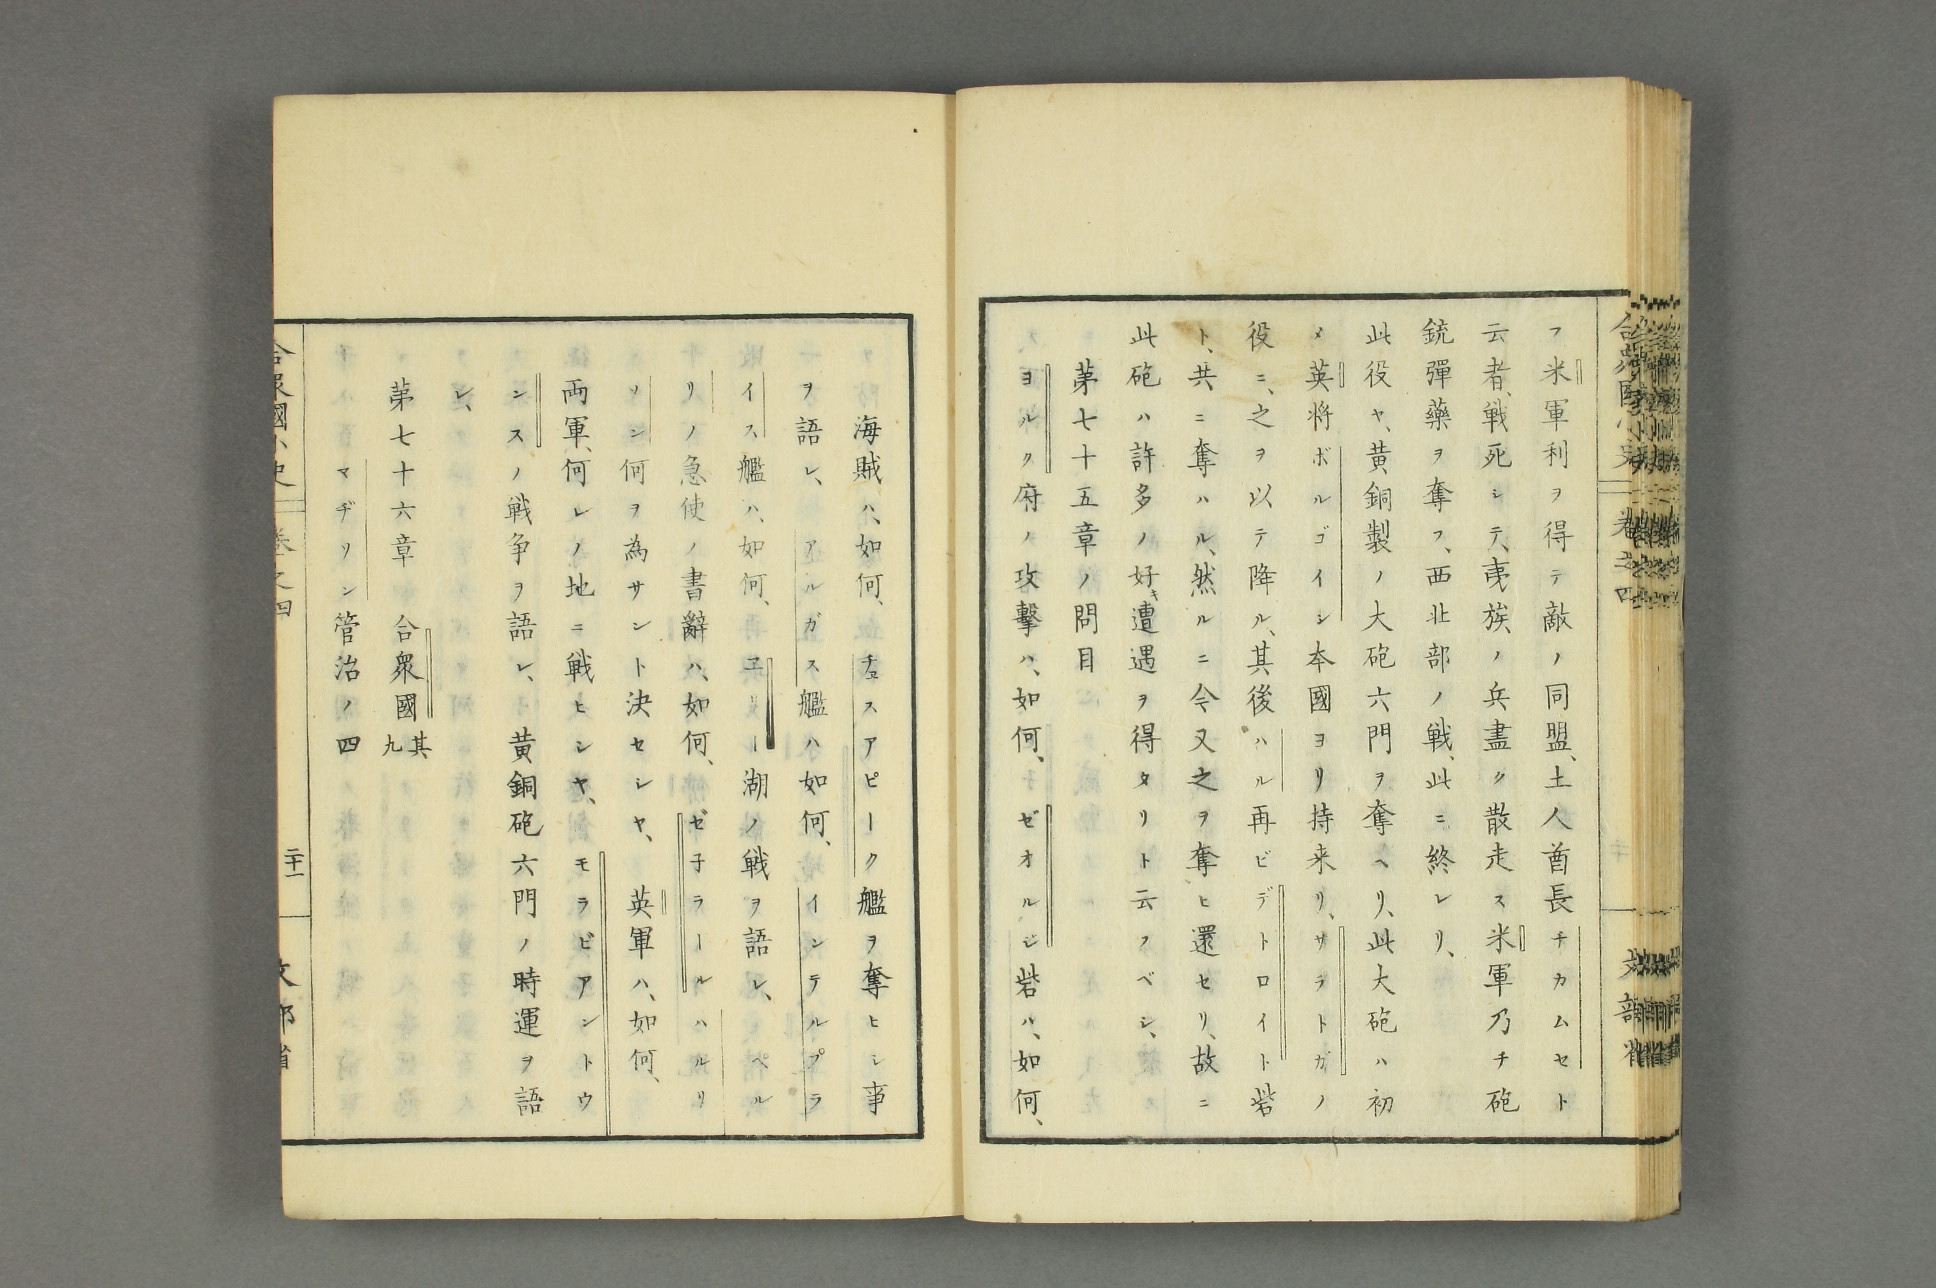 フ米軍利ヲ得テ敵ノ同盟、土人酋長チカムセト
云者、戦死シテ、夷族ノ兵盡ク散走ス米軍乃チ砲
銃彈藥ヲ奪フ、西北部ノ戦、此ニ終レリ、
此役ヤ、黄銅製ノ大砲六門ヲ奪ヘリ、此大砲ハ初
メ英将ボルゴイン本國ヨリ持来リ、サラトガノ
役ニ、之ヲ以テ降ル、其後ハル再ビデトロイト砦
ト、共ニ奪ハル、然ルニ今又之ヲ奪ヒ還セリ、故ニ
此砲ハ許多ノ好キ遭遇ヲ得タリト云フベシ、
第七十五章ノ問目
ヨルク府ノ攻擊ハ、如何、ゼオルジ砦ハ、如何、
海賊ハ、如何、チェスアピーク艦ヲ奪ヒシ事
ヲ語レ、アルガス艦ハ如何、インテルプラ
イス艦ハ、如何、エリー湖ノ戦ヲ語レ、ペル
リノ急使ノ書辭ハ、如何、ゼ子ラールハルリ
ソン何ヲ為サント決セシヤ、英軍ハ、如何、
両軍、何レノ地ニ戦ヒシヤ、モラビアントウ
ンスノ戦争ヲ語レ、黄銅砲六門ノ時運ヲ語
レ、
第七十六章 合衆國其九
マヂソン管治ノ四
合衆國小史 卷之四 二十一 文部省